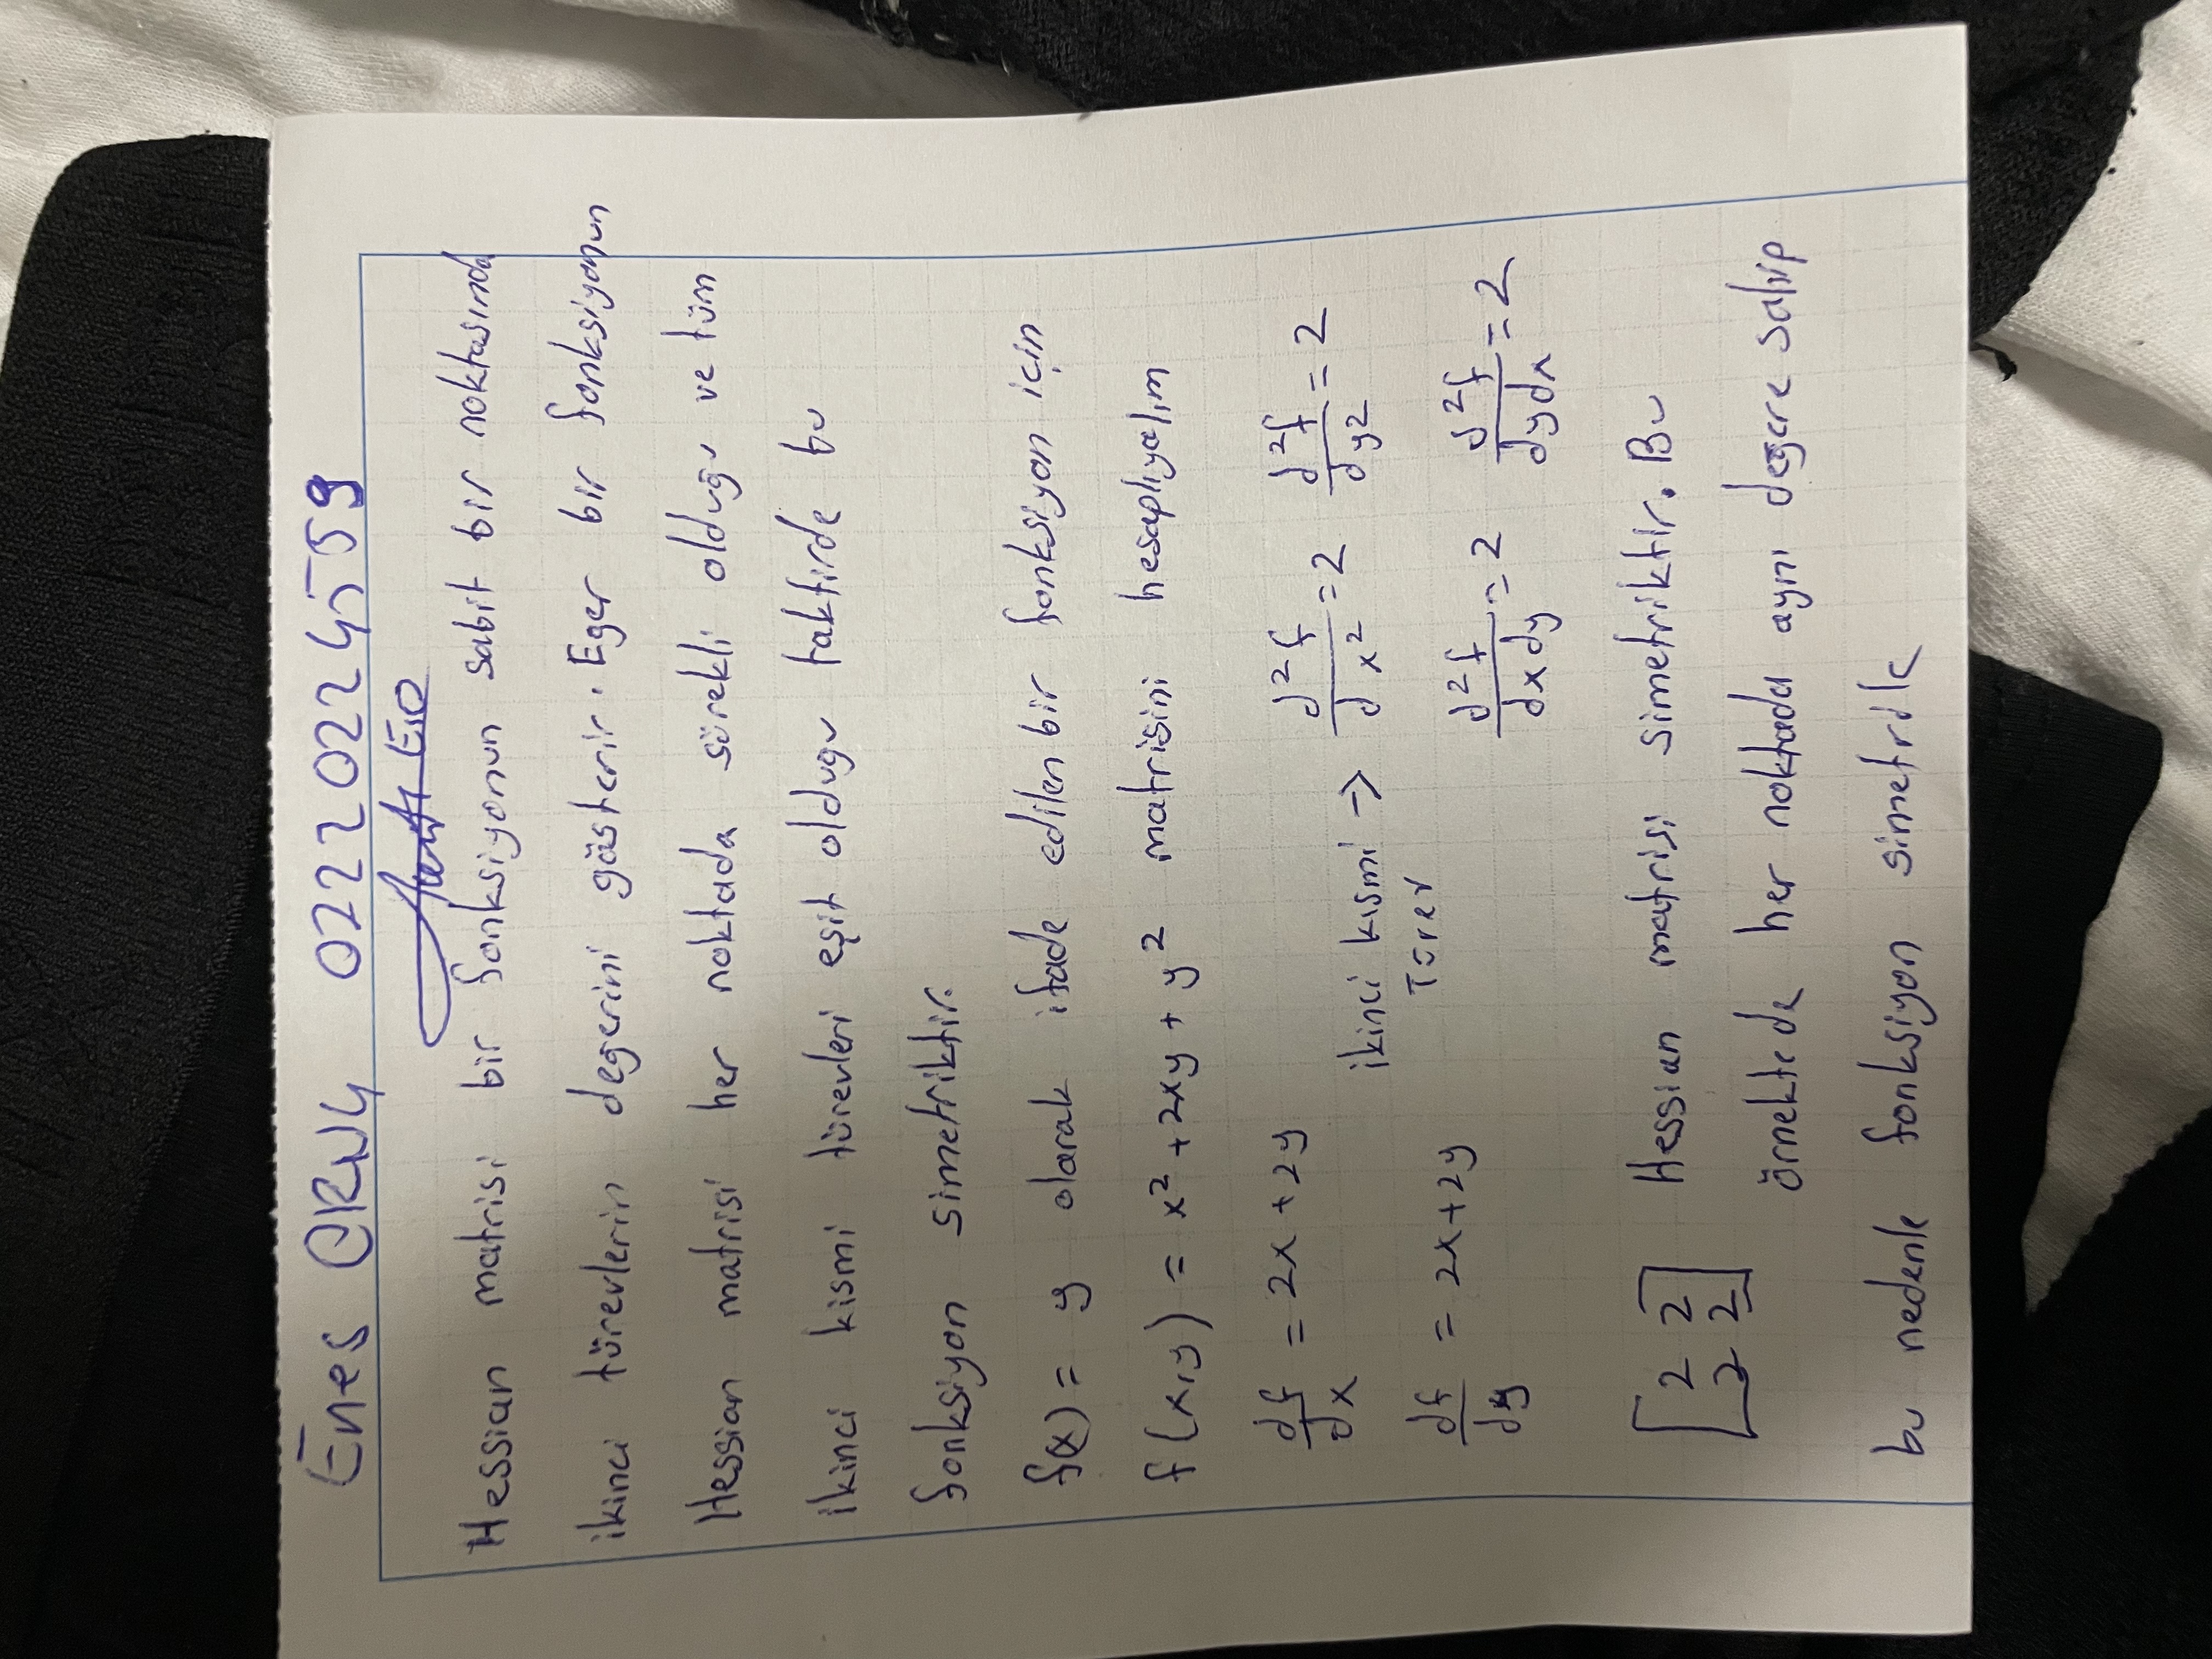 Enes 022202224559
E.O
Hessian matrisi bir fonksiyonun sabit bir noktasında
ikinci türevlerin degerini gösterir. Eger bir fonksiyonun
Hessian matrisi her noktada sürekli olduğu ve tüm
ikinci kismi türevleri eşit oldugu taktirde bu
fonksiyon simetriktir.
f(x) = y olarak ifade edilen bir fonksiyon için
f(x,y) = x² + 2xy + y² matrisini hesaplıyalım
df/dx = 2x + 2y
ikinci kısmi → d²f/dx² = 2 d²f/dy² = 2
Türev
df/dy = 2x+2y
d²f/dxdy = 2 d²f/dydx = 2
[2 2 Hessian matrisi simetriktir. Bu
2 2]
örnektede her noktada aynı degere sahip
bu nedenle fonksiyon simetrik